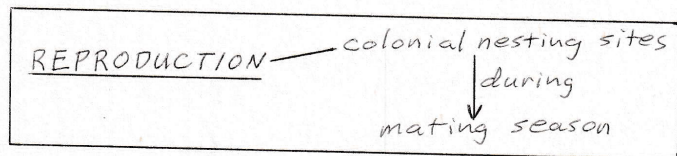 REPRODUCTION — colonial nesting sites
during
mating season